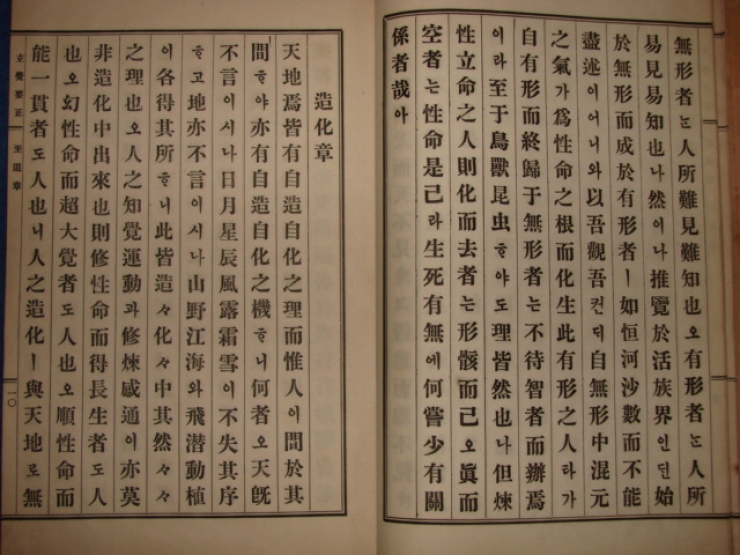 無形者ᄂᆞᆫ人所難見難知也오有形者ᄂᆞᆫ人所
易見易知也나然이나推覽於活族界인딘始
於無形而成於有形者ㅣ如恒河沙數而不能
盡述이어니와以吾觀吾컨ᄃᆡ自無形中混元
之氣가爲性命之根而化生此有形之人라가
自有形而終歸于無形者는不待智者而辦焉
이라至于鳥獸昆虫ᄒᆞ야도理皆然也나但煉
性立命之人則化而去者는形骸而已오眞而
空者는性命是己라生死有無에何嘗少有關
係者哉아
造化章
天地焉皆有自造自化之理而惟人이間於其
間ᄒᆞ야亦有自造自化之機ᄒᆞ니何者오天旣
不言이시나日月星辰風露霜雪이不失其序
ᄒᆞ고地亦不言이시나山野江海와飛潛動植
이各得其所ᄒᆞ니此皆造々化々中其然々々
之理也오人之知覺運動과修煉感通이亦莫
非造化中出來也則修性命而得長生者도人
也오幻性命而超大覺者도人也오順性命而
能一貫者도人也니人之造化ㅣ與天地로無
覺要正 至道章 一〇